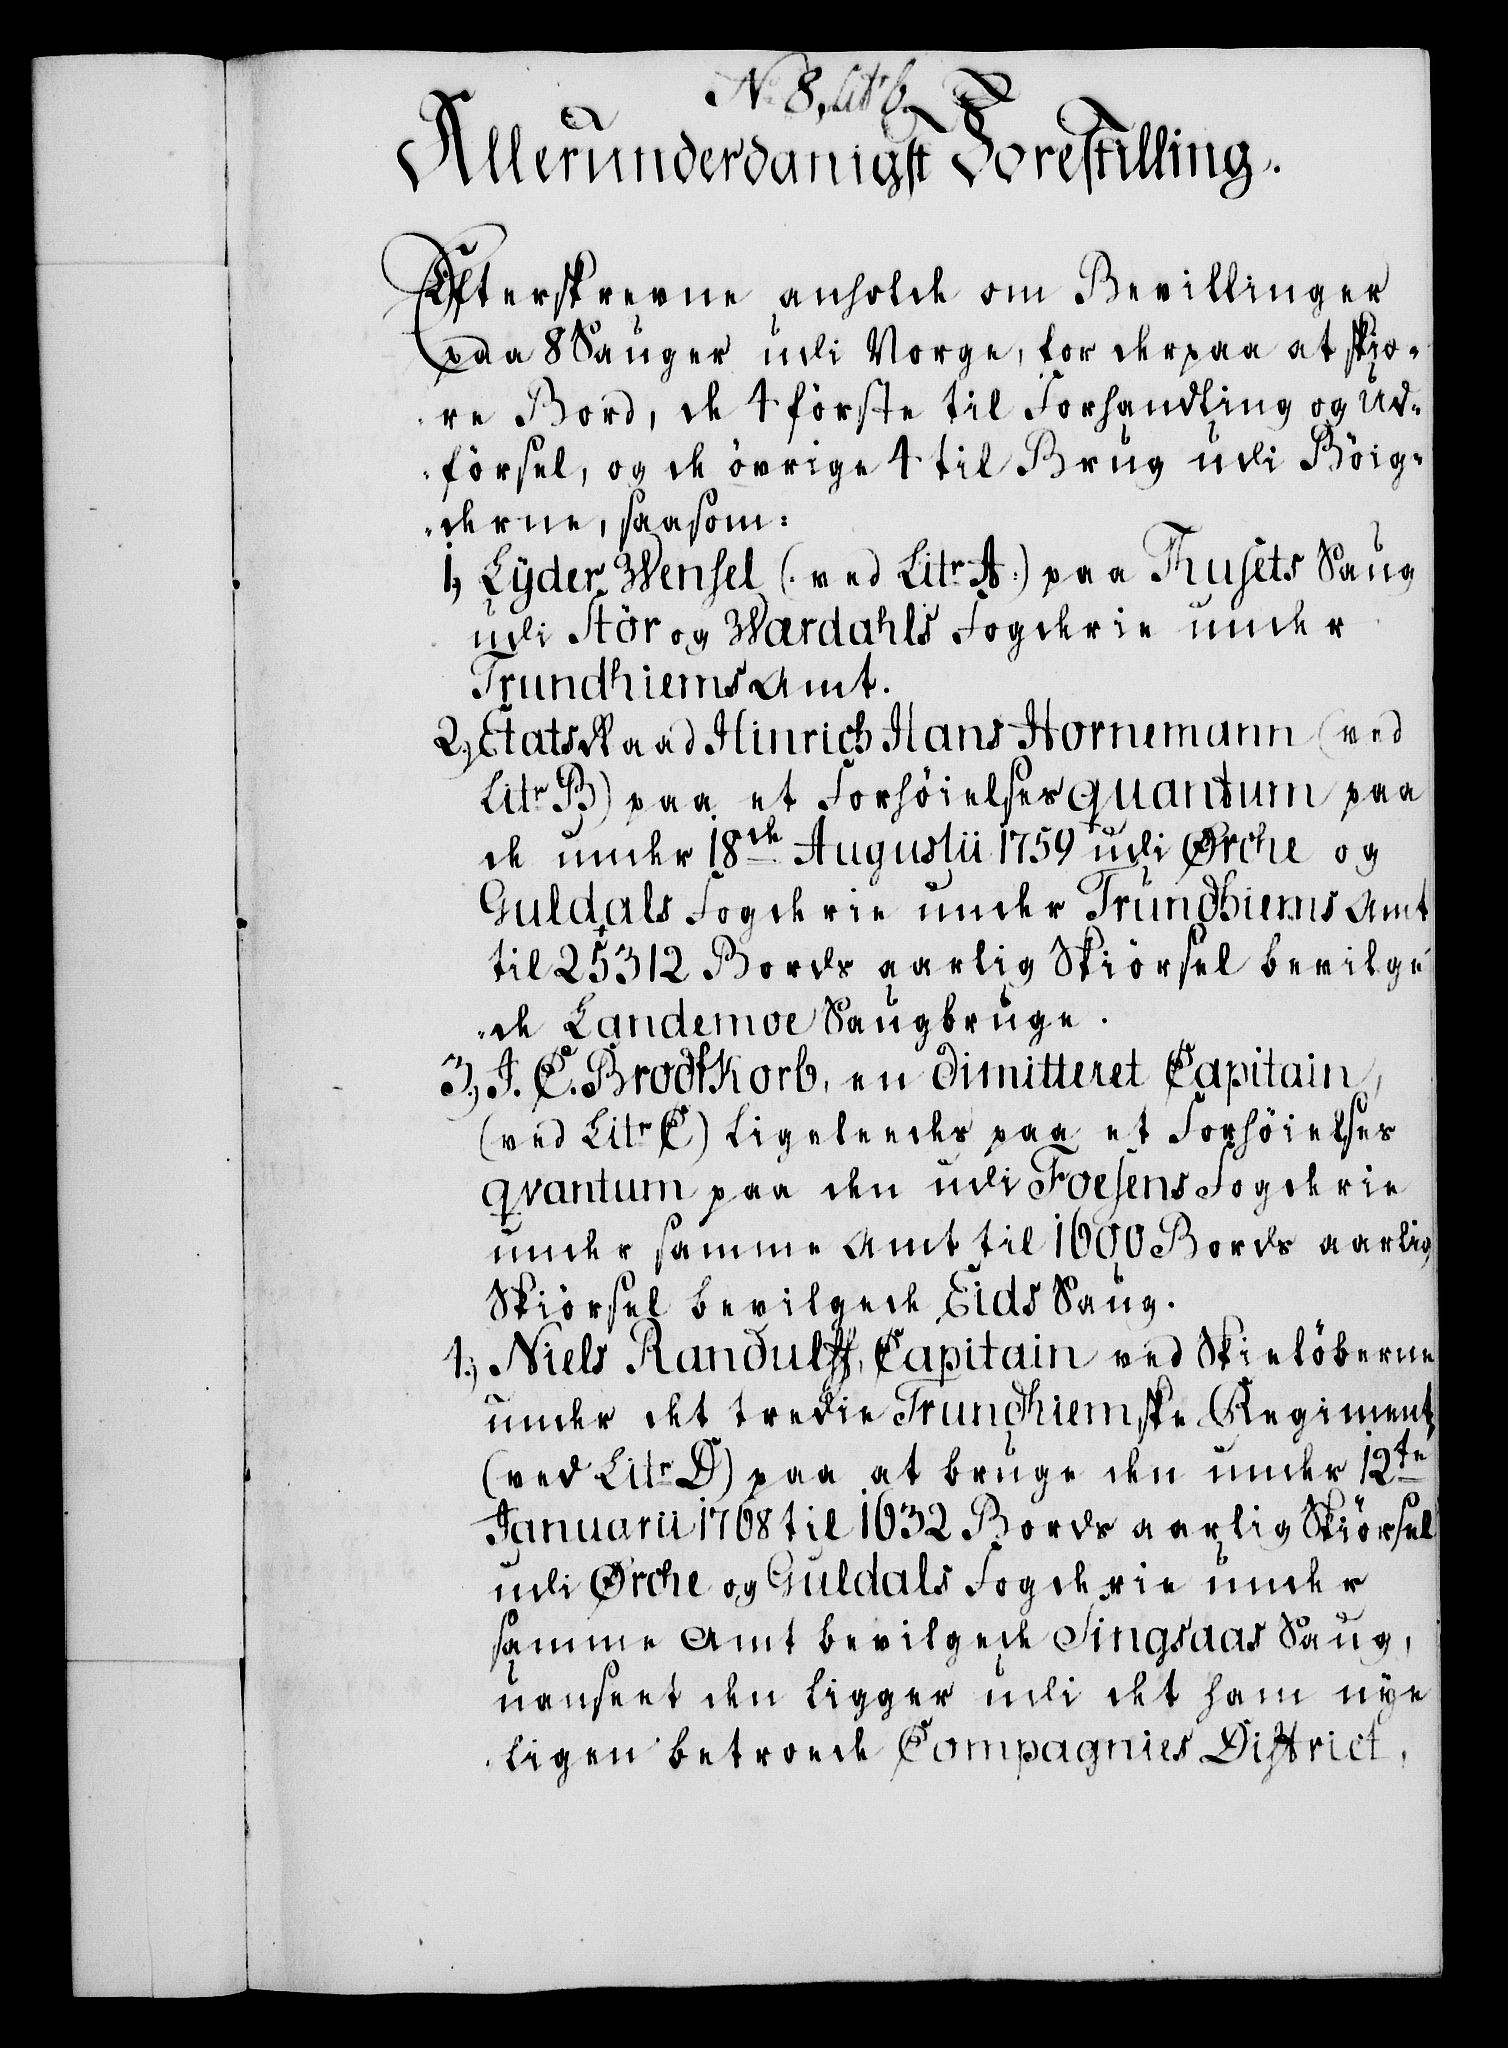 No 8, Litr b.
Allerunderdanigst Forestilling.
Efterskrevne anholde om Bevillinger
paa 8 Sauger udi Norge, for derpaa at skiö-
re Bord, de 4 förste til Forhandling og Ud-
försel, og de övrige 4 til Brug udi Böig-
derne, saasom:
1, Lyder Wensel (: ved Litr A:) paa Thusets Saug
udi Stör og Wærdahls Fogderie under
Trundhiems Amt.
2, EtatsRaad Hinrich Hans Hornemann (ved
Litr B) paa et Forhöielses quantum paa
de under 18de Augustii 1759 udi Ørche og
Guldals Fogderie under Trundhiems Amt
til 25312 Bords aarlig Skiörsel bevilge-
de Landemoe Saugbruge.
3, J. C. Brodtkorb, en dimitteret Capitain,
(ved Litr C) ligeleedes paa et Forhöielses
qvantum paa den udi Foesens Fogderie
under samme Amt til 1600 Bords aarlig
Skiörsel bevilgede Eids Saug.
4, Niels Randulff, Capitain ved Skielöberne
under det tredie Trundhiemske Regiment,
(ved Litr D) paa at bruge den under 12te
Januarii 1768 til 1632 Bords aarlig Skiörsel
udi Ørche og Guldals Fogderie under
samme Amt bevilgede Singsaas Saug,
uanseet den ligger udi det ham nye
ligen betroede Compagnies District,